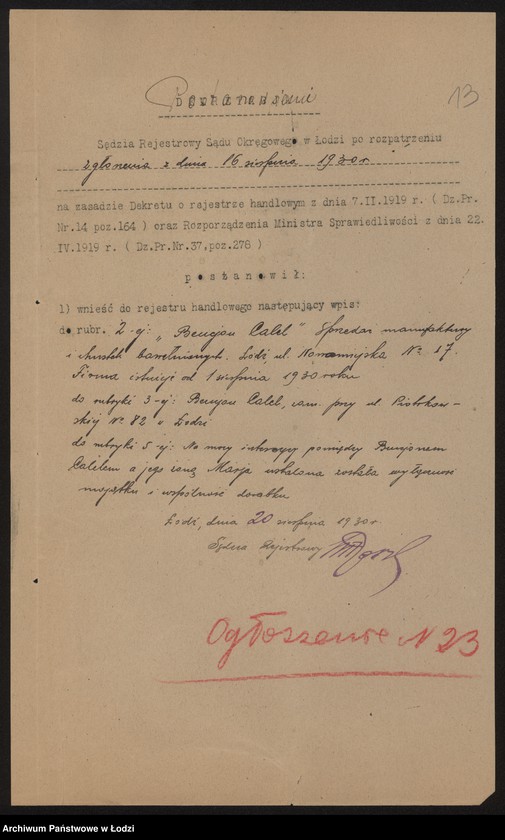 13
Postanowienie
Sędzia Rejestrowy Sądu Okręgowego w Łodzi po rozpatrzeniu
zgłoszenia z dnia 16 sierpnia 1930 r.
na zasadzie Dekretu o rejestrze handlowym z dnia 7.II.1919 r. ( Dz.Pr.
Nr.14 poz.164 ) oraz Rozporządzenia Ministra Sprawiedliwości z dnia 22.
IV.1919 r. ( Dz.Pr.Nr.37,poz.278 )
p o s t a n o w i ł :
1) wnieść do rejestru handlowego następujący wpis:
do rubr. 2-ej: „Bencjan Calel" Sprzedaż manufaktury
i chustek bawełnianych. Łódź, ul. Nowomiejska № 17.
Firma istnieje od 1 sierpnia 1930 roku
do rubryki 3-ej: Bencjan Calel, zam. przy ul. Piotrkow-
skiej № 82 w Łodzi
do rubryki 5-ej: Na mocy intercyzy pomiędzy Bencjanem
Calelem a jego żoną Marją ustalona została wyłączność
majątku i wspólność dorobku
Łódź, dnia 20 sierpnia 1930 r.
Sędzia Rejestrowy
Ogłoszenie N 23
Archiwum Państwowe w Łodzi